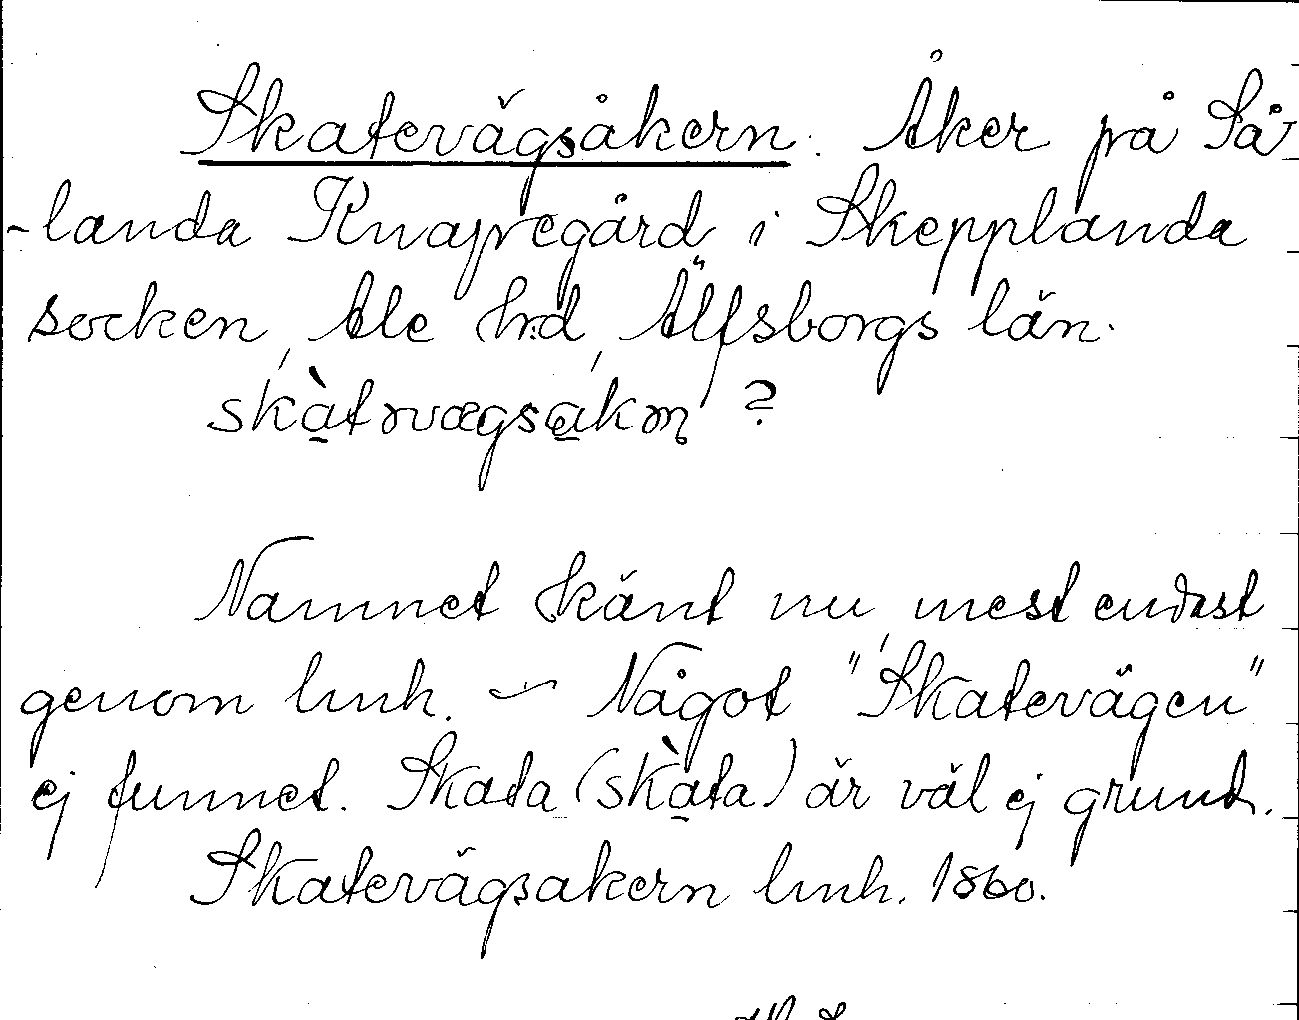 Skatevägsåkern. Åker på Så-
-landa Knapegård i Skepplanda
socken, Ale hd, Älfsborgs län.
skàtrvægsåkrn ?
Namnet känt nu mest endast
genom lmh. – Något "Skatevägen"
ej funnet. Skata (skàta) är väl ej grund.
Skatevägsakern lmh. 1860.